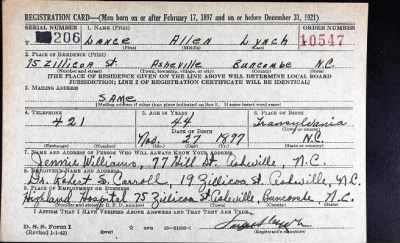 REGISTRATION CARD—(Men born on or after February 17, 1897 and on or before December 31, 1921)
SERIAL NUMBER 1. NAME (Print) ORDER NUMBER
206 Lance Allen Lynch 10547
(First) (Middle) (Last)
2. PLACE OF RESIDENCE (Print)
75 Zillicoa St. Asheville Buncombe N.C.
(Number and street) (Town, township, village, or city) (County) (State)
[THE PLACE OF RESIDENCE GIVEN ON THE LINE ABOVE WILL DETERMINE LOCAL BOARD
JURISDICTION; LINE 2 OF REGISTRATION CERTIFICATE WILL BE IDENTICAL]
3. MAILING ADDRESS
SAME
[Mailing address if other than place indicated on line 2. If same insert word same]
4. TELEPHONE 5. AGE IN YEARS 6. PLACE OF BIRTH
421 44 Transylvania
DATE OF BIRTH
Nov. 27 1897 N.C.
(Exchange) (Number) (Mo.) (Day) (Yr.) (State or country)
7. NAME AND ADDRESS OF PERSON WHO WILL ALWAYS KNOW YOUR ADDRESS
Jennie Williams, 77 Hill St. Asheville, N.C.
8. EMPLOYER'S NAME AND ADDRESS
Dr. Robert S. Carroll, 19 Zillicoa St. Asheville, N.C.
9. PLACE OF EMPLOYMENT OR BUSINESS
Highland Hospital 75 Zillicoa St. Asheville, Buncombe, N.C.
(Number and street or R. F. D. number) (Town) (County) (State)
I AFFIRM THAT I HAVE VERIFIED ABOVE ANSWERS AND THAT THEY ARE TRUE.
D. S. S. Form 1
(Revised 1-1-42) (Registrant's signature)